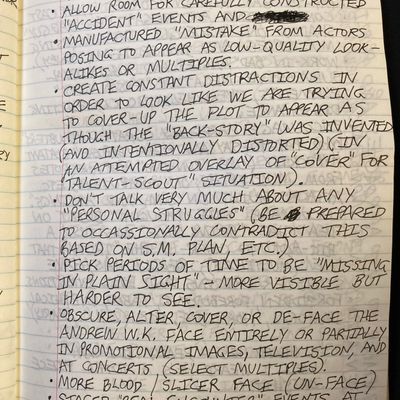 • ALLOW ROOM FOR CAREFULLY CONSTRUCTED
"ACCIDENT" EVENTS AND
• MANUFACTURED "MISTAKE" FROM ACTORS
POSING TO APPEAR AS LOW-QUALITY LOOK-
ALIKES OR MULTIPLES.
• CREATE CONSTANT DISTRACTIONS IN
ORDER TO LOOK LIKE WE ARE TRYING
TO COVER-UP THE PLOT TO APPEAR AS
THOUGH THE "BACK-STORY" WAS INVENTED
(AND INTENTIONALLY DISTORTED) (IN
AN ATTEMPTED OVERLAY OF "COVER" FOR
"TALENT-SCOUT" SITUATION).
• DON'T TALK VERY MUCH ABOUT ANY
"PERSONAL STRUGGLES" (BE PREPARED
TO OCCASSIONALLY CONTRADICT THIS
BASED ON S.M. PLAN, ETC.)
• PICK PERIODS OF TIME TO BE "MISSING
IN PLAIN SIGHT" - MORE VISIBLE BUT
HARDER TO SEE.
• OBSCURE, ALTER, COVER, OR DE-FACE THE
ANDREW W.K. FACE ENTIRELY OR PARTIALLY
IN PROMOTIONAL IMAGES, TELEVISION, AND
AT CONCERTS (SELECT MULTIPLES).
• MORE BLOOD / SLICER FACE (UN-FACE)
• STAGED "REAL ENCOUNTER" EVENTS AT